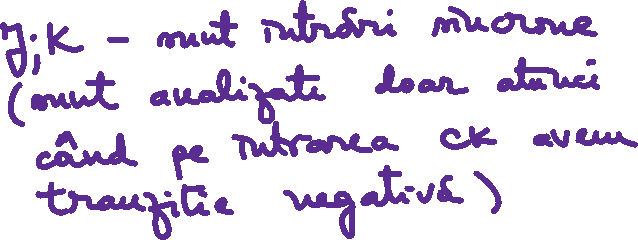 J;K - sunt intrări sincrone
(sunt analizate doar atunci
când pe intrarea CK avem
tranziție negativă)